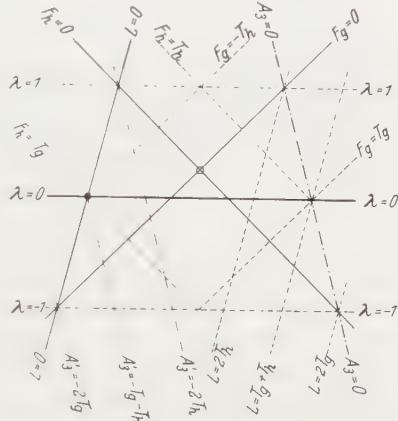 F_h=0
L=0
F_h=T_h
F_g=-T_h
A_3=0
F_g=0
λ=1
λ=1
F_h=T_g
F_g=T_g
λ=0
λ=0
λ=-1
λ=-1
L=0
A'_3=-2T_g
A'_3=-T_g-T_h
A'_3=-2T_h
L=2T_h
L=T_g+T_h
L=2T_g
A_3=0